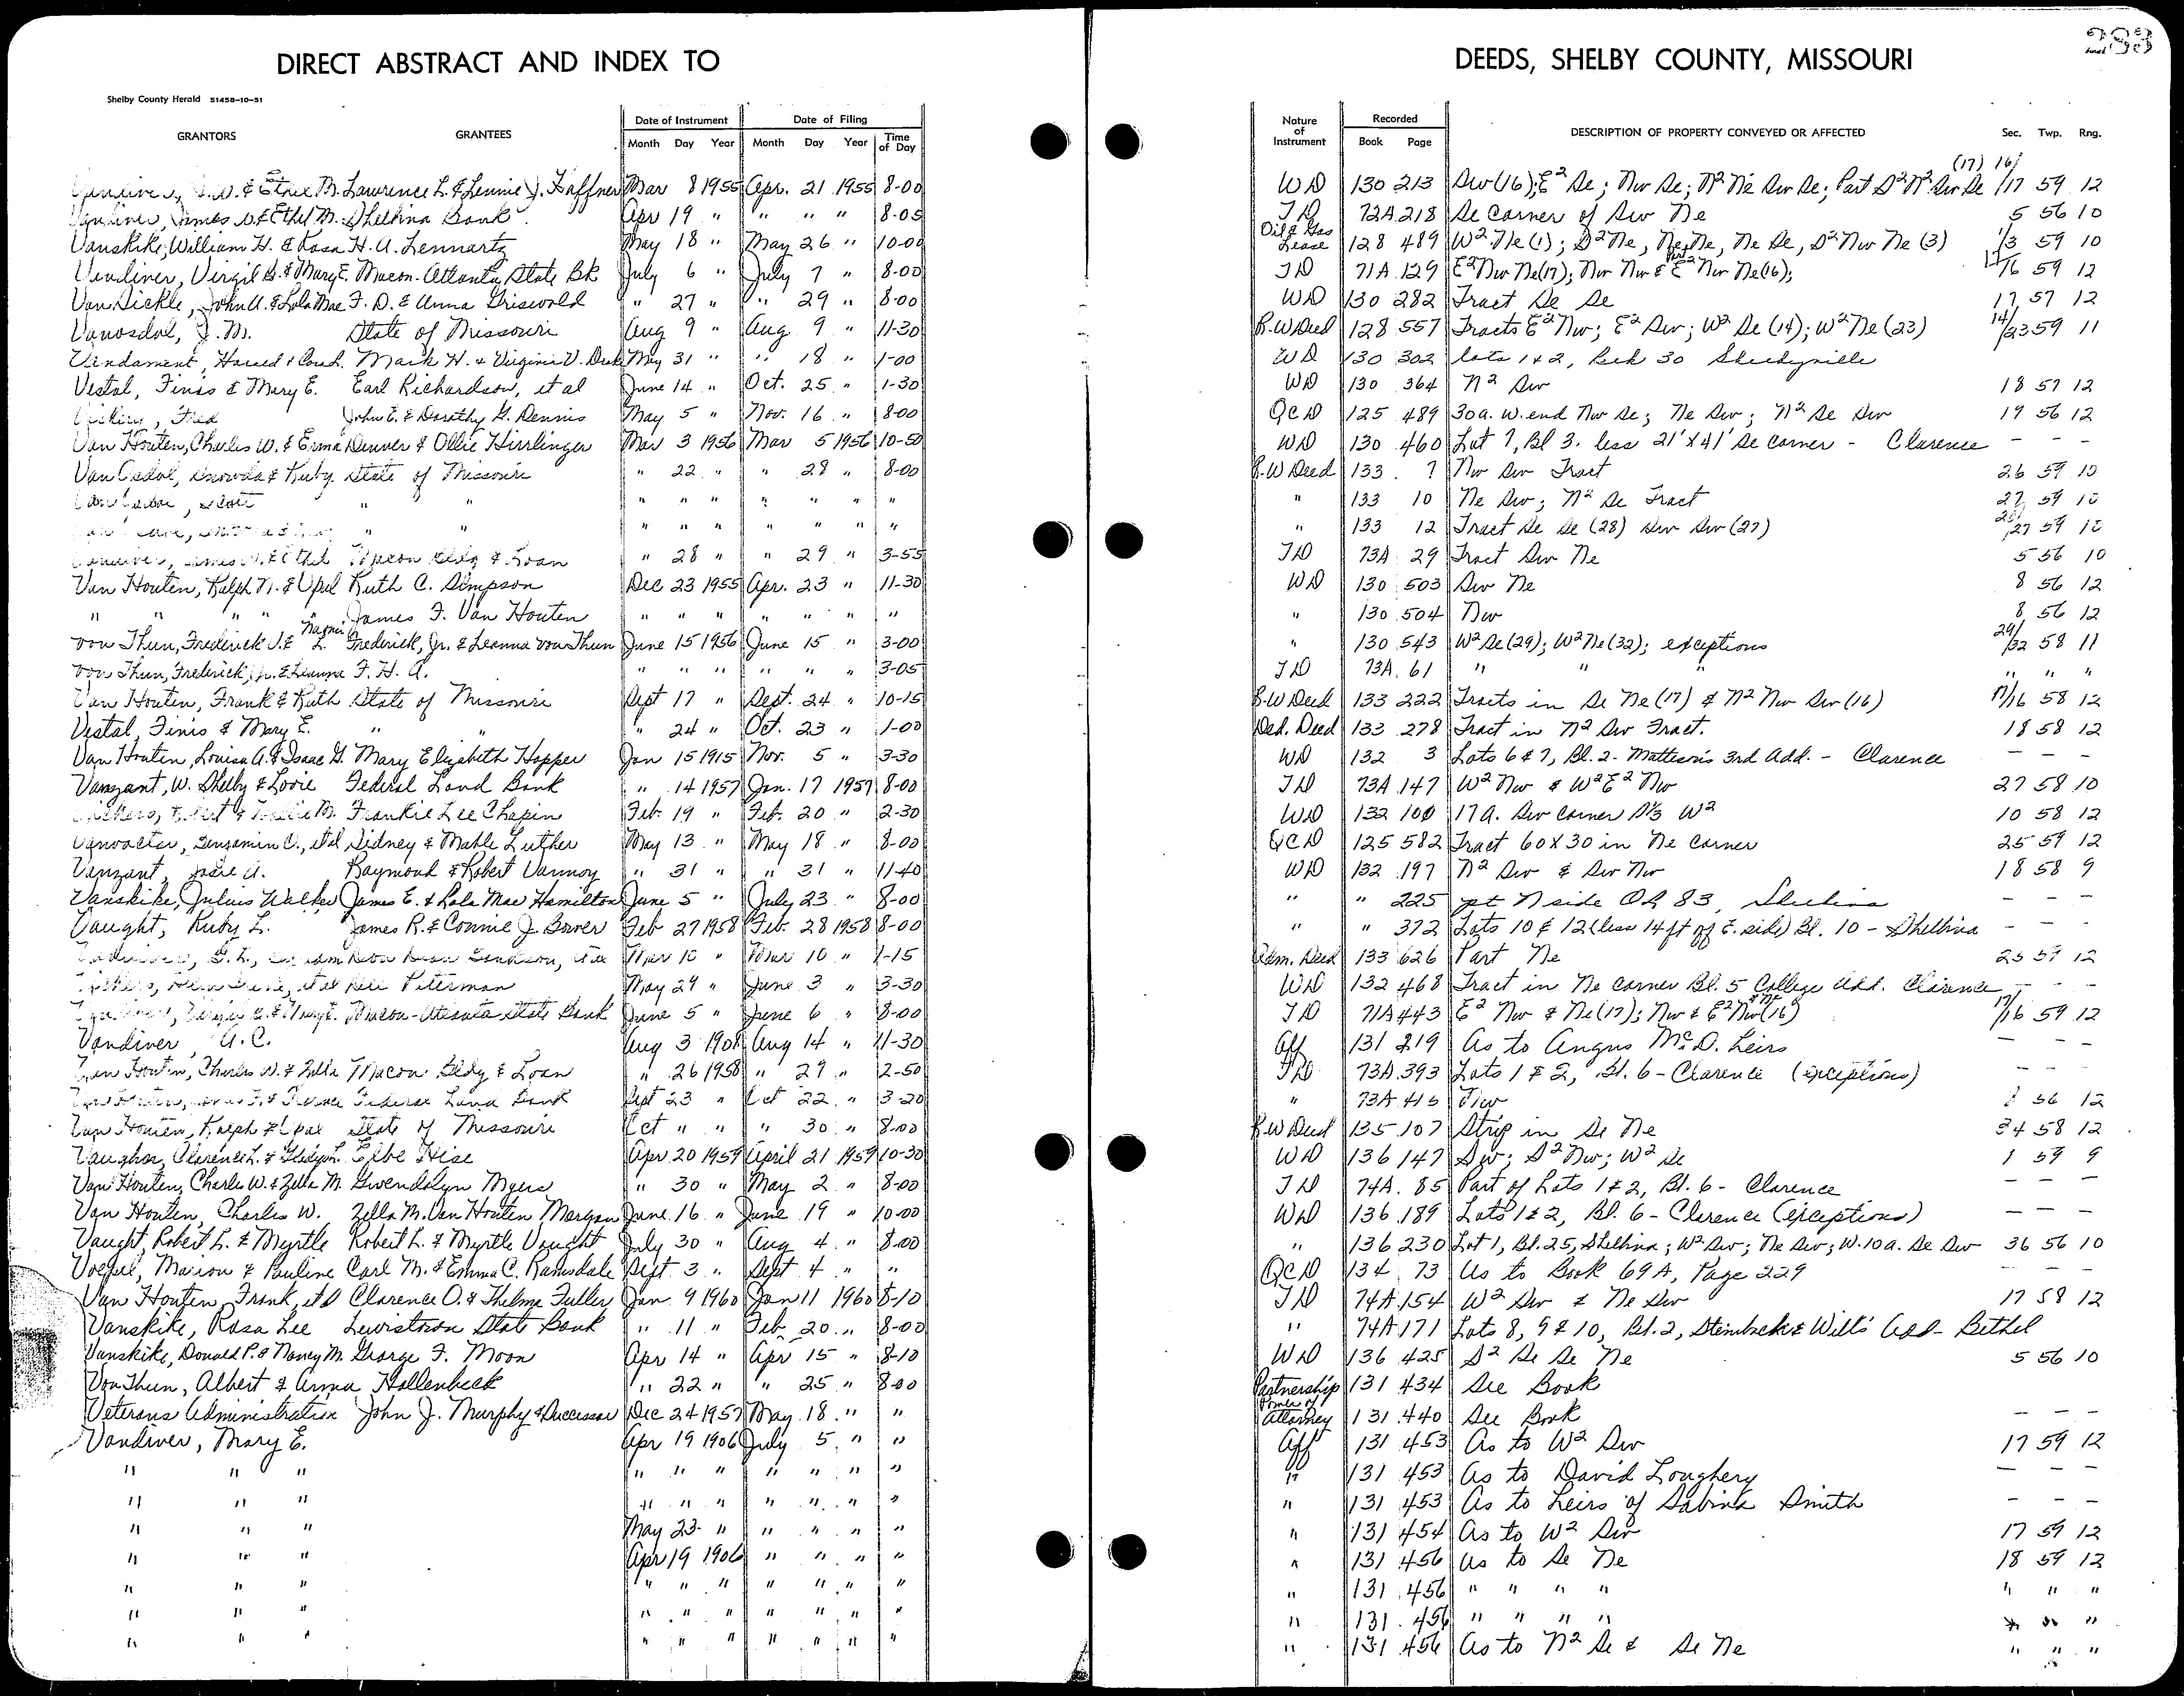 DIRECT ABSTRACT AND INDEX TO
DEEDS, SHELBY COUNTY, MISSOURI
283
Shelby County Herald 51458-10-51
GRANTORS GRANTEES Date of Instrument Month Day Year Date of Filing Month Day Year Time of Day Nature of Instrument Recorded Book Page DESCRIPTION OF PROPERTY CONVEYED OR AFFECTED Sec. Twp. Rng.
(17) 16/
& Ethel M. Lawrence L. & Lennie J. Haffner Mar 8 1955 Apr. 21 1955 8-00 WD 130 213 Sw (16); E² Se; Nw Se; N² Ne Sw Se; Part S² N² Sw Se /17 59 12
James W. & Ethel M. Shelbina Bank Apr 19 " " " " 8-05 TD 72A 218 Se corner of Sw Ne 5 56 10
Vanskike, William H. & Rosa H. A. Lennartz May 18 " May 26 " 10-00 Oil & Gas Lease 128 489 W² Ne (1); S² Ne, Ne Ne, Ne Se, S² Nw Ne (3) 1/3 59 10
Vandiver, Virgil B. & Mary E. Macon-Atlanta State Bk July 6 " July 7 " 8-00 TD 71A 129 E² Nw Ne (17); Nw Nw & Part E² Nw Ne (16); 17/16 59 12
Van Sickle, John A. & Lola Mae F. D. & Anna Griswold " 27 " " 29 " 8-00 WD 130 282 Tract Se Se 17 57 12
Vanosdal, J. M. State of Missouri Aug 9 " Aug 9 " 11-30 R-W Deed 128 557 Tracts E² Nw; E² Sw; W² Se (14); W² Ne (23) 14/23 59 11
Mark H. & Virginia V. May 31 " " 18 " 1-00 WD 130 302 Lots 1 & 2, 30
Vestal, Finis & Mary E. Earl Richardson, et al June 14 " Oct. 25 " 1-30 WD 130 364 N² Sw 18 57 12
Fred John E. & Dorothy G. Dennis May 5 " Nov. 16 " 8-00 QCD 125 489 30a. W. end Nw Se; Ne Sw; N² Se Sw 17 56 12
Van Houten, Charles W. & Erma Denver & Ollie Hirrlinger Mar 3 1956 Mar 5 1956 10-50 WD 130 460 Lot 7, Bl 3. less 21' X 41' Se corner - Clarence - - -
Van Osdol, & Ruby State of Missouri " 22 " " 28 " 8-00 R-W Deed 133 7 Nw Sw Tract 26 59 10
" " " " " " " " " " 133 10 Ne Sw; N² Se Tract 27 59 10
" " " " " " " " " " 133 12 Tract Se Se (28) Sw Sw (27) 28/27 59 10
Macon Bldg & Loan " 28 " " 29 " 3-55 TD 73A 29 Tract Sw Ne 5 56 10
Van Houten, Ralph N. & Opal Ruth C. Simpson Dec 23 1955 Apr. 23 " 11-30 WD 130 503 Sw Ne 8 56 12
" " " " James F. Van Houten " " " " " " " " 130 504 Nw 8 56 12
von Thun, Frederick J. & Naomi L. Frederick, Jr. & Leanna von Thun June 15 1956 June 15 " 3-00 " 130 543 W² Se (29); W² Ne (32); exceptions 29/32 58 11
von Thun, Frederick, Jr. & Leanna F. H. A. " " " " " " 3-05 TD 73A 61 " " " " " "
Van Houten, Frank & Ruth State of Missouri Sept 17 " Sept. 24 " 10-15 R-W Deed 133 222 Tracts in Se Ne (17) & N² Nw Sw (16) 17/16 58 12
Vestal, Finis & Mary E. " " " 24 " Oct. 23 " 1-00 Ded. Deed 133 278 Tract in N² Sw Fract. 18 58 12
Van Houten, Louisa A. & Isaac G. Mary Elizabeth Hopper Jan 15 1915 Nov. 5 " 3-30 WD 132 3 Lots 6 & 7, Bl. 2 - Matteson's 3rd Add. - Clarence - -
Vanzant, W. Shelby & Lovie Federal Land Bank " 14 1957 Jan. 17 1957 8-00 TD 73A 147 W² Nw & W² E² Nw 27 58 10
Frankie Lee Chapin Feb. 19 " Feb. 20 " 2-30 WD 132 100 17a. Sw corner S⅓ W² 10 58 12
Benjamin C., et al Sidney & Mable Luther May 13 " May 18 " 8-00 QCD 125 582 Tract 60 X 30 in Ne corner 25 59 12
Vanzant, Josie A. Raymond & Robert Vannoy " 31 " " 31 " 11-40 WD 132 197 N² Sw & Sw Nw 18 58 9
Vanskike, Julius Walker James E. & Lola Mae Hamilton June 5 " July 23 " 8-00 " " 225 pt N side OL 83, Shelbina - - -
Vaught, Ruby L. James R. & Connie J. Bower Feb 27 1958 Feb. 28 1958 8-00 " " 372 Lots 10 & 12 (less 14 ft of E. side) Bl. 10 - Shelbina - - -
Mar 10 " Mar 10 " 1-15 Adm. Deed 133 626 Part Ne 25 59 12
et al Peterman May 29 " June 3 " 3-30 WD 132 468 Tract in Ne corner Bl. 5 College Add. Clarence - - -
Macon-Atlanta State Bank June 5 " June 6 " 8-00 TD 71A 443 E² Nw & Ne (17); Nw & E² Nw & Ne (16) 17/16 59 12
Vandiver, A. C. Aug 3 1908 Aug 14 " 11-30 Aff 131 219 As to Angus McD. heirs - - -
Van Houten, Charles W. & Zella Macon Bldg & Loan " 26 1958 " 29 " 2-50 TD 73A 393 Lots 1 & 2, Bl. 6 - Clarence (exceptions) - - -
Federal Land Bank Sept 23 " Oct 22 " 3-20 " 73A 415 Nw 56 12
Van Houten, Ralph & Opal State of Missouri Oct " " " 30 " 8-00 R-W Deed 135 107 Strip in Se Ne 34 58 12
Vaughan, Clarence L. & Gladys L. Elbe Hise Apr 20 1959 April 21 1959 10-30 WD 136 147 Sw; S² Nw; W² Se 1 59 9
Van Houten, Charles W. & Zella M. Gwendolyn Myers " 30 " May 2 " 8-00 TD 74A 85 Part of Lots 1 & 2, Bl. 6 - Clarence - - -
Van Houten, Charles W. Zella M. Van Houten Morgan June 16 " June 19 " 10-00 WD 136 189 Lots 1 & 2, Bl. 6 - Clarence (exceptions) - - -
Vaught, Robert L. & Myrtle Robert L. & Myrtle Vaught July 30 " Aug 4 " 8-00 " 136 230 Lot 1, Bl. 25, Shelbina; W² Sw; Ne Sw; W. 10a. Se Sw 36 56 10
Marion & Pauline Carl M. & Emma C. Ramsdale Sept 3 " Sept 4 " " QCD 134 73 As to Book 69A, Page 229 - - -
Van Houten, Frank, et al Clarence O. & Thelma Fuller Jan. 9 1960 Jan 11 1960 8-10 TD 74A 154 W² Sw & Ne Sw 17 58 12
Vanskike, Rosa Lee Lewistown State Bank " 11 " Feb. 20 " 8-00 " 74A 171 Lots 8, 9 & 10, Bl. 2, Steinbach & Will's Add - Bethel
Vanskike, Donald P. & Nancy M. George F. Moon Apr 14 " Apr 15 " 8-10 WD 136 425 S² Se Se Ne 5 56 10
Von Thun, Albert & Anna Hollenbeck " 22 " " 25 " 8-00 Partnership 131 434 See Book
Veterans Administration John J. Murphy & Successor Dec 24 1957 May 18 " " Power of Attorney 131 440 See Book - - -
Vandiver, Mary E. Apr 19 1906 July 5 " " Aff 131 453 As to W² Sw 17 59 12
" " " " " " " " " " " 131 453 As to David Loughery - - -
" " " " " " " " " " " 131 453 As to heirs of Sabina Smith - - -
" " " May 23 " " " " " " 131 454 As to W² Sw 17 59 12
" " " Apr 19 1906 " " " " " 131 456 As to Se Ne 18 59 12
" " " " " " " " " " " 131 456 " " " " " " "
" " " " " " " " " " " 131 456 " " " " " " "
" " " " " " " " " " " 131 456 As to N² Se & Se Ne " " "